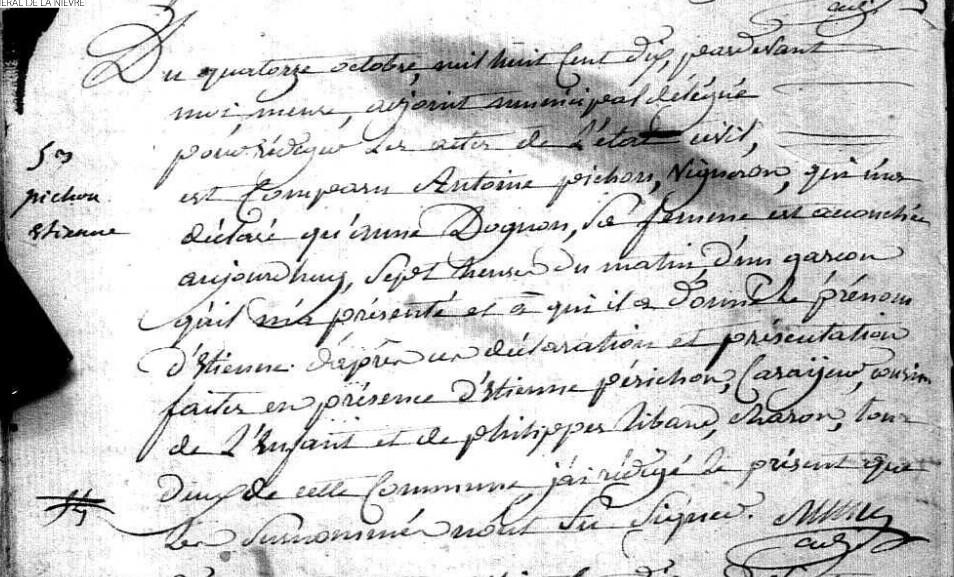 ERAL DE LA NIEVRE
Du quatorze octobre, mil huit Cent dix, pardevant
moi meme, adjoint municipal délégué
pour rédiger les actes de l'état civil,
53
pichon
Etienne
est Comparu Antoine pichon, Vigneron, qui m'a
déclaré qu'anne Dognon, Sa femme est accouchée
aujourdhuy, Sept heures du matin, d'un garçon
qu'il m'a présenté et à qui il a Donné le prénom
d'Etienne. d'après ces déclaration et présentation
faites en présence d'Etienne périchon, cousin
de l'Enfant et de philippes libaud, charon, tous
deux de cette Commune j'ai rédigé le présent que
les Surnommés n'ont Su Signer.
adj